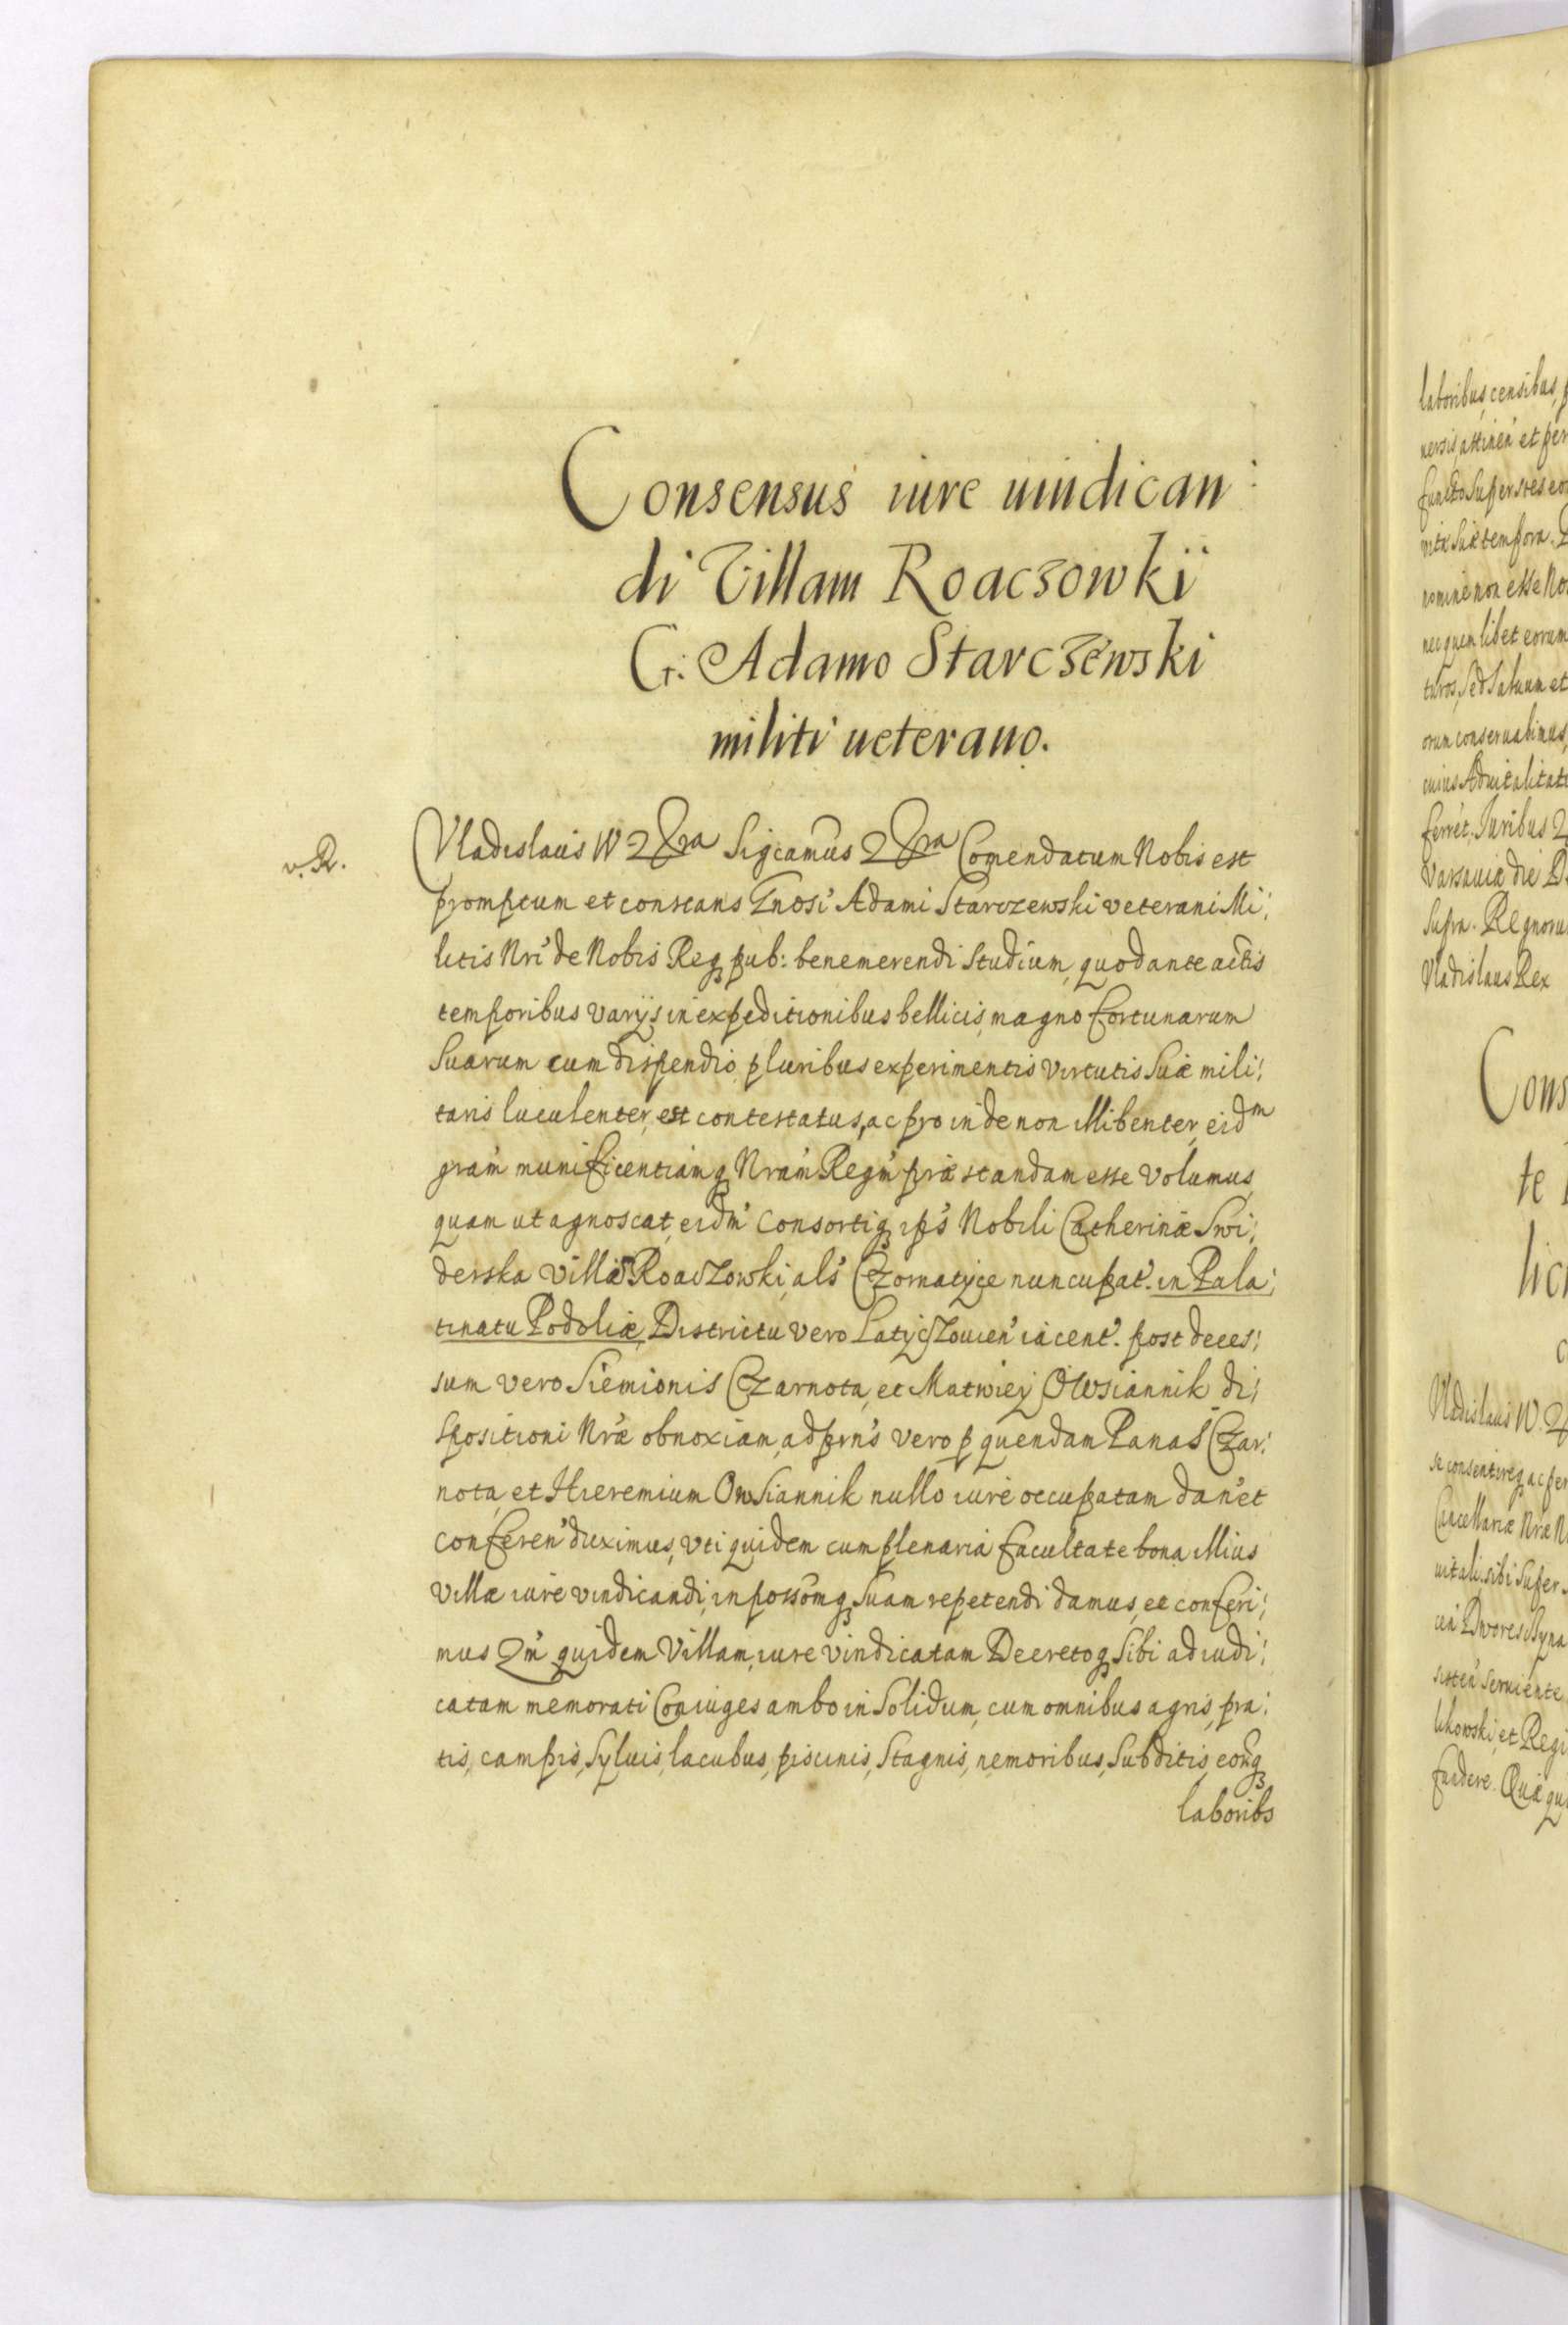 Consensus iure uindican:
di Villam Roaczowki
G: Adamo Starczewski
militi ueterano.
v. R.
Vladislaus IV Sigcamus Comendatum Nobis est
promptum et constans Gnosi Adami Starczewski veterani Mi;
litis Nri de Nobis Reqpub: benemerendi studium, quod ante actis
temporibus varijs in expeditionibus bellicis, magno fortunarum
Suarum cum dispendio, pluribus experimentis virtutis Suæ mili;
taris luculenter est contestatus, ac pro inde non illibenter, eidm
gram munificentiamq Nram Regm præstandam esse volumus,
quam ut agnoscat, eidm Consortiq ips Nobili Catherinæ Swi;
derska villã Roaczowki, als Czornatyce nuncupat. in Pala;
tinatu Podoliæ, Districtu vero Latyczouien iacent. post deces;
sum vero Siemionis Czarnota, et Matwiey Owsiannik di;
spositioni Nræ obnoxiam, ad prns vero p quendam Panas Czar;
nota, et Hieremium Owsiannik nullo iure occupatam dan et
conferen duximus, vti quidem cum plenaria facultate bona illius
villæ iure vindicandi, in possomq Suam repetendi damus, et conferi;
mus Qm quidem Villam, iure vindicatam Decretoq Sibi adiudi;
catam memorati Coniuges ambo in Solidum, cum omnibus agris, pra;
tis, campis, Syluis, lacubus, piscinis, Stagnis, nemoribus, Subditis, eonq
laboribs
laboribus, censibus,
uersis, attinen et per
functo Superstes eo
vitæ Suæ tempora.
nomine non esse No
nec quem libet eorum
turos, Sed Saluum et
orum conseruabimus,
cuius Aduitalitat
ferret. Juribus
Varsauiæ die
Supra. Regnoru
Vladislaus Rex
Cons
te
lic
Vladislaus IV.
se consentireq, ac per
Cancellariæ Nræ N
uitali. sibi Super
Seruiente
et Regi
fundere. Quæ qui